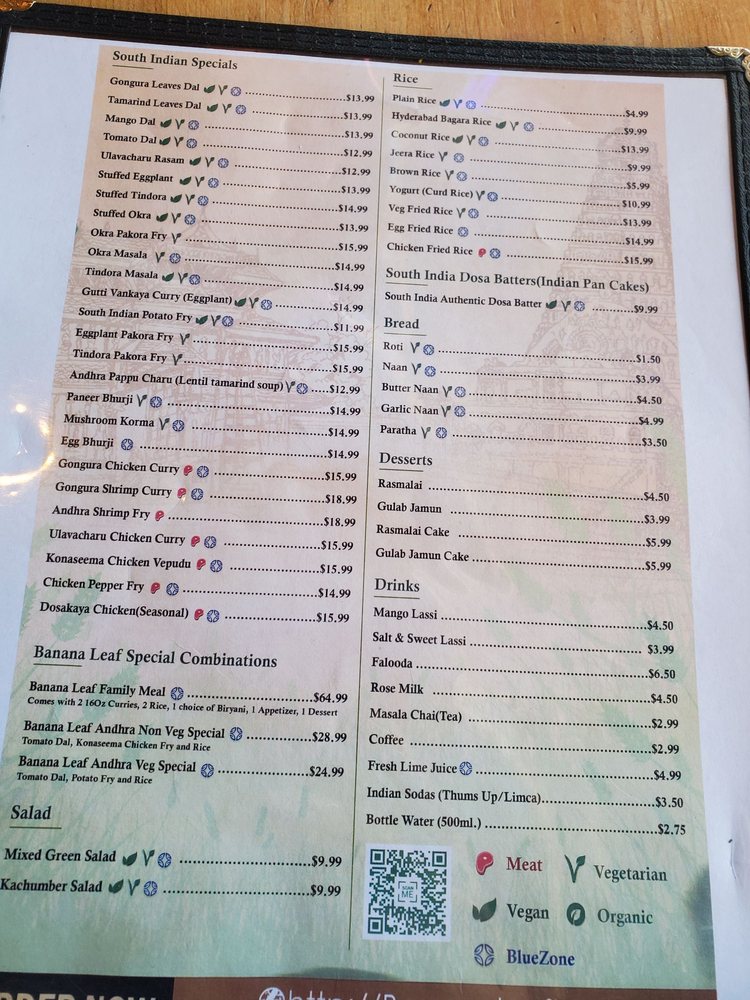 South Indian Specials
Gongura Leaves Dal ..............................$13.99
Tamarind Leaves Dal ..............................$13.99
Mango Dal ..............................$13.99
Tomato Dal ..............................$12.99
Ulavacharu Rasam ..............................$12.99
Stuffed Eggplant ..............................$13.99
Stuffed Tindora ..............................$14.99
Stuffed Okra ..............................$13.99
Okra Pakora Fry ..............................$15.99
Okra Masala ..............................$14.99
Tindora Masala ..............................$14.99
Gutti Vankaya Curry (Eggplant) ....................$14.99
South Indian Potato Fry ..............................$11.99
Eggplant Pakora Fry ..............................$15.99
Tindora Pakora Fry ..............................$15.99
Andhra Pappu Charu (Lentil tamarind soup) .....$12.99
Paneer Bhurji ..............................$14.99
Mushroom Korma ..............................$14.99
Egg Bhurji ..............................$14.99
Gongura Chicken Curry ..............................$15.99
Gongura Shrimp Curry ..............................$18.99
Andhra Shrimp Fry ..............................$18.99
Ulavacharu Chicken Curry ..............................$15.99
Konaseema Chicken Vepudu ..............................$15.99
Chicken Pepper Fry ..............................$14.99
Dosakaya Chicken(Seasonal) ..............................$15.99
Banana Leaf Special Combinations
Banana Leaf Family Meal ..............................$64.99
Comes with 2 16Oz Curries, 2 Rice, 1 choice of Biryani, 1 Appetizer, 1 Dessert
Banana Leaf Andhra Non Veg Special ....................$28.99
Tomato Dal, Konaseema Chicken Fry and Rice
Banana Leaf Andhra Veg Special ..............................$24.99
Tomato Dal, Potato Fry and Rice
Salad
Mixed Green Salad ..............................$9.99
Kachumber Salad ..............................$9.99
Rice
Plain Rice ..............................$4.99
Hyderabad Bagara Rice ..............................$9.99
Coconut Rice ..............................$13.99
Jeera Rice ..............................$9.99
Brown Rice ..............................$5.99
Yogurt (Curd Rice) ..............................$10.99
Veg Fried Rice ..............................$13.99
Egg Fried Rice ..............................$14.99
Chicken Fried Rice ..............................$15.99
South India Dosa Batters(Indian Pan Cakes)
South India Authentic Dosa Batter ..........$9.99
Bread
Roti ..............................$1.50
Naan ..............................$3.99
Butter Naan ..............................$4.50
Garlic Naan ..............................$4.99
Paratha ..............................$3.50
Desserts
Rasmalai ..............................$4.50
Gulab Jamun ..............................$3.99
Rasmalai Cake ..............................$5.99
Gulab Jamun Cake ..............................$5.99
Drinks
Mango Lassi ..............................$4.50
Salt & Sweet Lassi ..............................$3.99
Falooda ..............................$6.50
Rose Milk ..............................$4.50
Masala Chai(Tea) ..............................$2.99
Coffee ..............................$2.99
Fresh Lime Juice ..............................$4.99
Indian Sodas (Thums Up/Limca)....................$3.50
Bottle Water (500ml.) ..............................$2.75
SCAN
ME
Meat
Vegetarian
Vegan
Organic
BlueZone